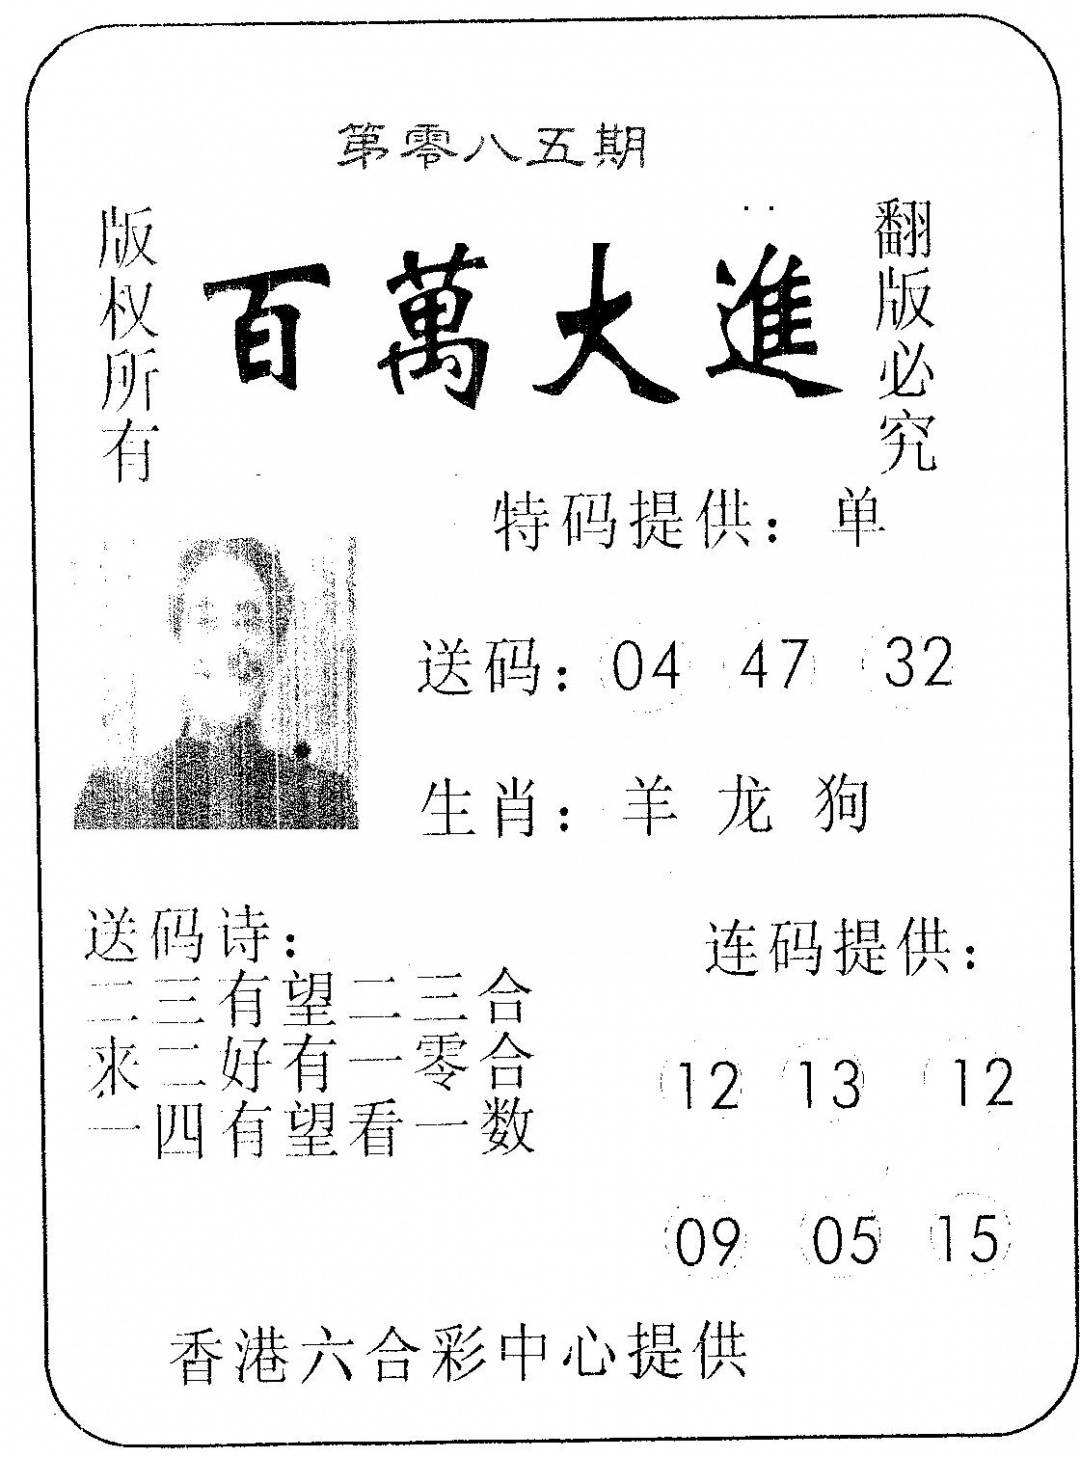 第零八五期
版权所有
百萬大進
翻版必究
特码提供：单
送码：04 47 32
生肖：羊 龙 狗
送码诗：
二三有望二三合
来二好有一零合
一四有望看一数
连码提供：
12 13 12
09 05 15
香港六合彩中心提供